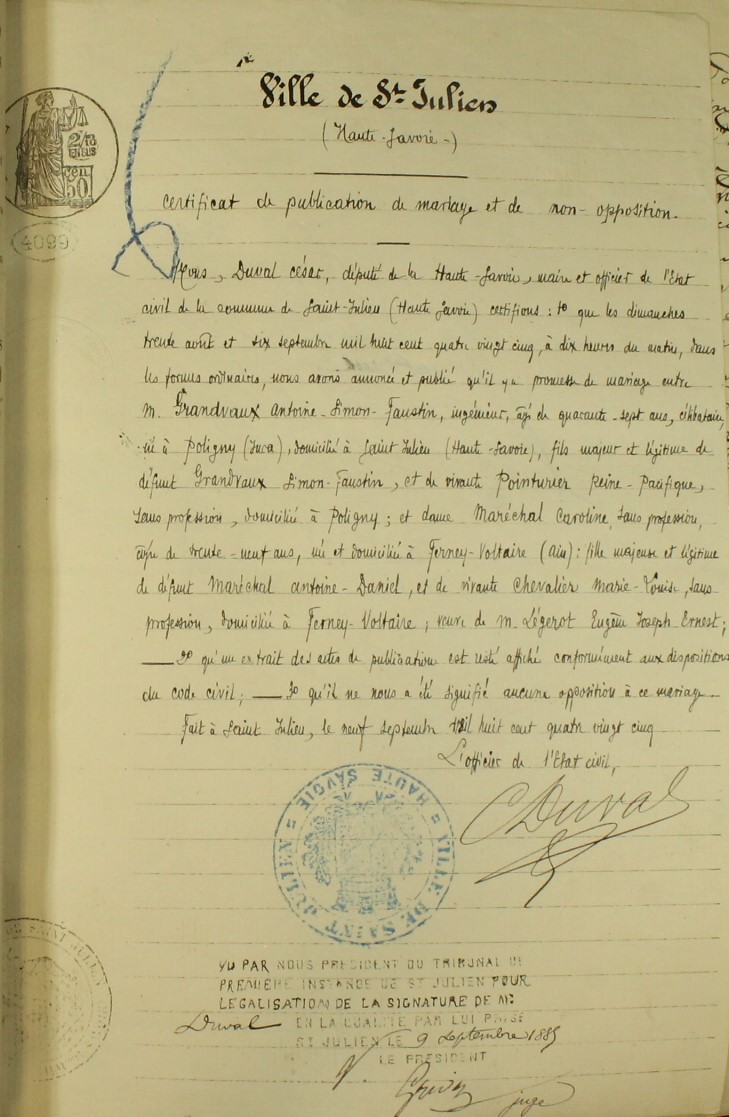 Ville de St Julien
(Haute-Savoie-)
certificat de publication de mariage et de non-opposition.
2/10 EN SUS
50 cen
4099
Nous, Duval César, député de la Haute-Savoie, maire et officier de l'Etat
civil de la commune de Saint-Julien (Haute Savoie) certifions : 1º que les dimanches
trente août et six septembre mil huit cent quatre vingt cinq, à dix heures du matin, dans
les formes ordinaires, nous avons annoncé et publié qu'il y a promesse de mariage entre
M. Grandvaux Antoine-Simon-Faustin, ingénieur, âgé de quarante-sept ans, célibataire,
né à Poligny (Jura), domicilié à Saint Julien (Haute-Savoie), fils majeur et légitime de
défunt Grandvaux Simon-Faustin, et de vivante Pointurier Reine-Pacifique,
sans profession, domiciliée à Poligny ; et dame Maréchal Caroline, sans profession,
âgée de trente-neuf ans, née et domiciliée à Ferney-Voltaire (Ain) : fille majeure et légitime
de défunt Maréchal Antoine-Daniel, et de vivante Chevalier Marie-Louise, sans
profession, domiciliée à Ferney-Voltaire ; veuve de M. Légerot Eugène Joseph-Ernest ;
2º qu'un extrait des actes de publication est resté affiché conformément aux dispositions
du code civil ; 3º qu'il ne nous a été signifié aucune opposition à ce mariage
Fait à Saint Julien, le neuf septembre mil huit cent quatre vingt cinq
L'officier de l'Etat civil,
C Duval
VILLE DE SAINT JULIEN = HAUTE SAVOIE =
VU PAR NOUS PRESIDENT DU TRIBUNAL DE
PREMIERE INSTANCE DE ST JULIEN POUR
LEGALISATION DE LA SIGNATURE DE Mr
Duval EN LA QUALITE PAR LUI PRISE
ST JULIEN LE 9 Septembre 1885
LE PRESIDENT
juge
DE SAINT JULIEN